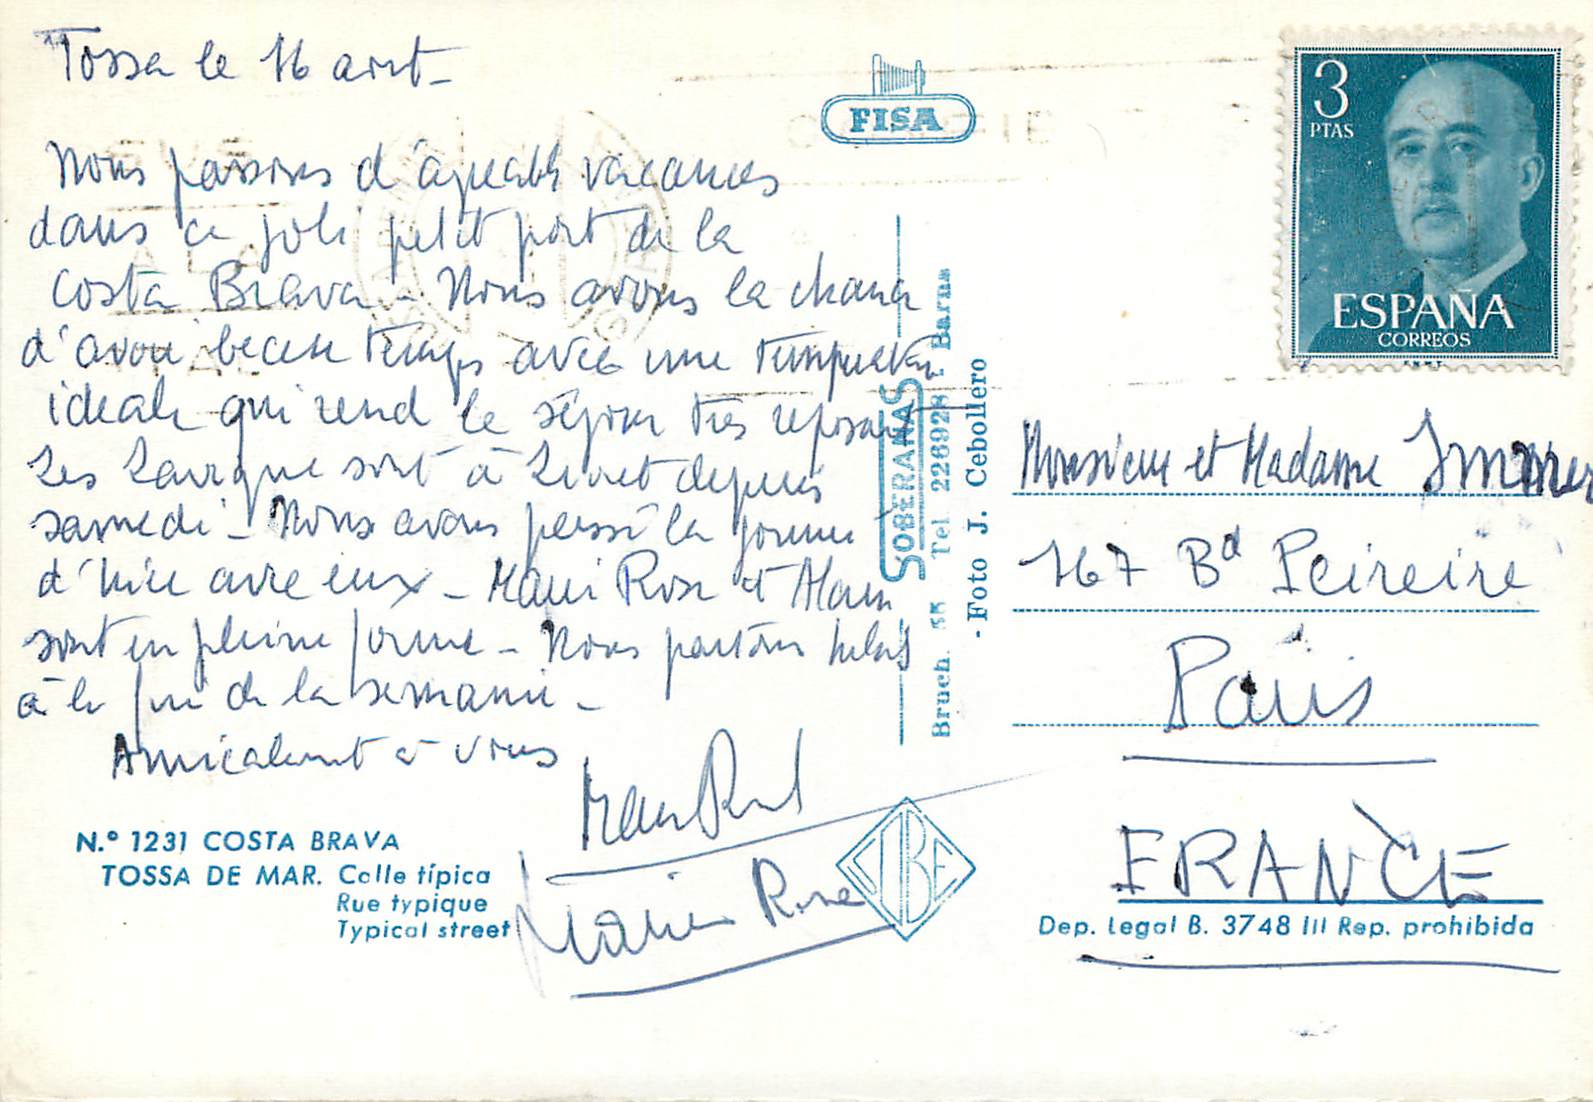 Tossa le 16 août -
Nous passons d'agréables vacances
dans ce joli petit port de la
Costa Brava - Nous avons la chance
d'avoir beau temps avec une température
idéale qui rend le séjour très reposant
Les Lavigne sont à Lloret depuis
samedi - Nous avons passé la journée
d'hier avec eux - Marie Rose et Alain
sont en pleine forme - Nous partons hélas
à la fin de la semaine -
Amicalement à vous
Marie Rose
N.º 1231 COSTA BRAVA
TOSSA DE MAR. Calle típica
Rue typique
Typical street
FISA
SOBERANAS
Bruch. 55 Tel 226928 - Barna
- Foto J. Cebollero
SOBE
3
PTAS
ESPAÑA
CORREOS
Monsieur et Madame
167 Bd Peireire
Paris
FRANCE
Dep. Legal B. 3748 III Rep. prohibida